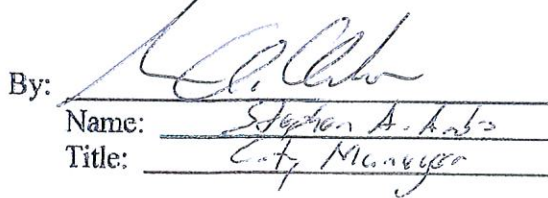 By:
Name: Stephen A.
Title: City Manager